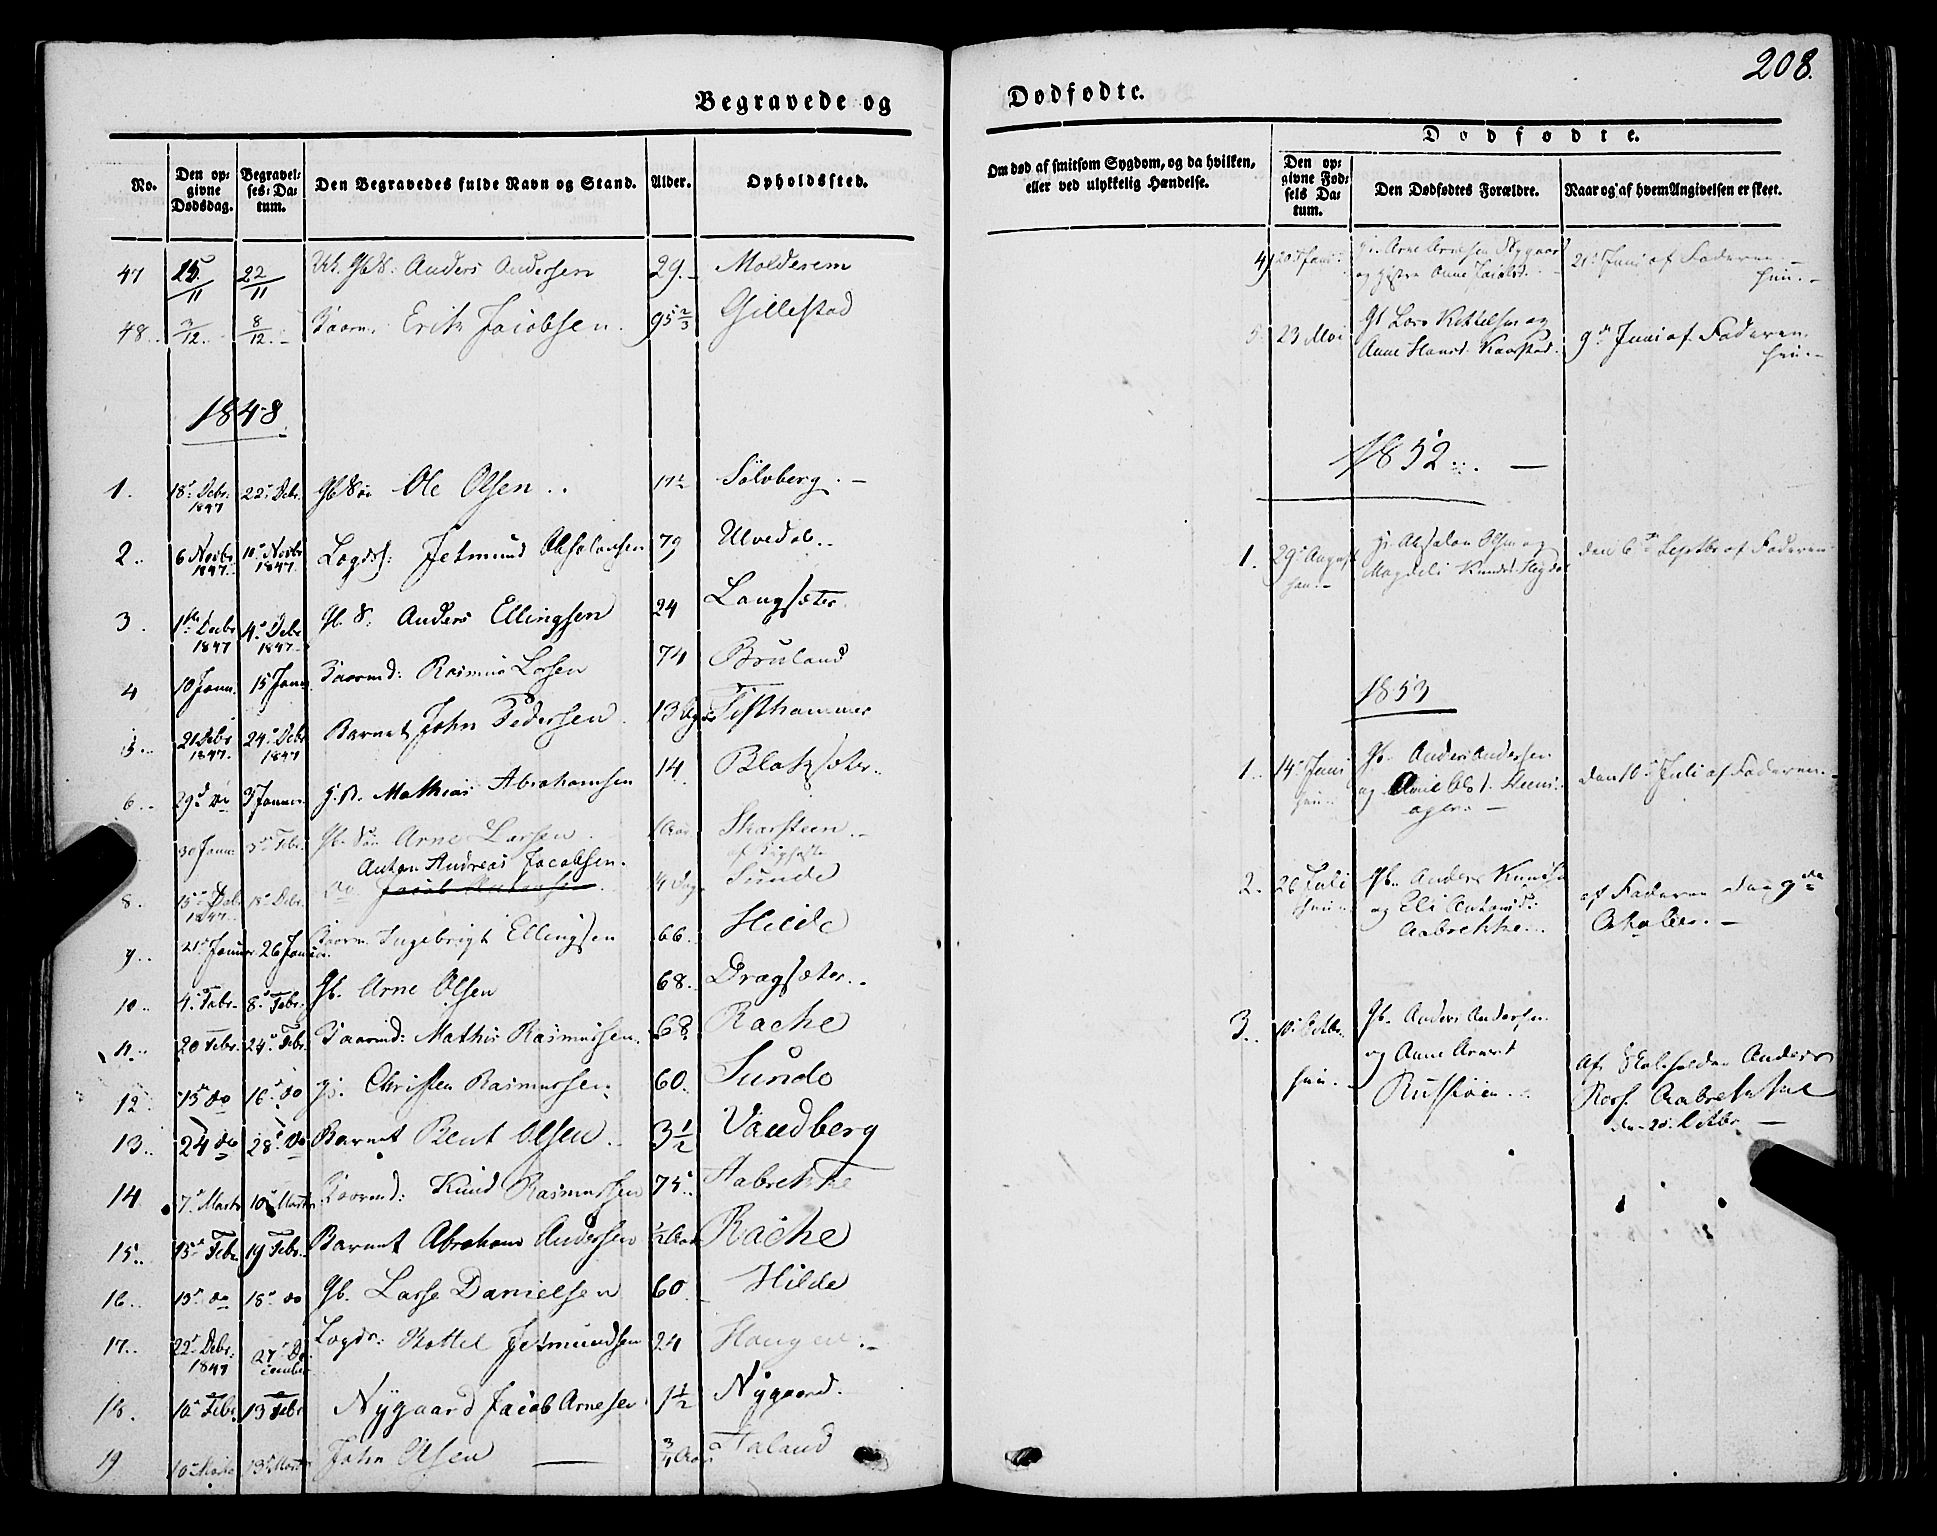 208.
Begravede og
Dødfødte.
No.
Den op-
givne
Dødsdag.
Begravel-
ses-Da-
tum.
Den Begravedes fulde Navn og Stand.
Alder.
Opholdssted.
Om død af smitsom Sygdom, og da hvilken,
eller ved ulykkelig Hændelse.
Dødfødte.
Den op-
givne Fød-
sels Da-
tum.
Den Dødfødtes Forældre.
Naar og af hvem Angivelsen er skeet.
47 15/11 22/11 Anders Andersen 29. Molderem
48. 3/12. 8/12. Erik Jacobsen. 95 2/3 Gillestad
1848.
1. 18. Debr. 1847 22. Debr. Ole Olsen Sølvberg.
2. 6 Novbr. 1847. 10. Novbr. 1847. Logdss: Jetmund Absalonsen 79 Ulvedal.
3. 1ste Decbr 1847 4. Debr 1847 Gb. S: Anders Ellingsen 24 Langsæter.
4 10 Janu. 15 Janu. Kaarmd: Rasmus Larsen 74 Bruland
5. 21 Debr 1847. 24. Debr 1847 Barnet John Pedersen 13 Tisthammer
6. 29 do 3 Januar. Mathias Abrahamsen 14 Blaksæter.
30 Janu. 5 Febr. Gb. Søn Arne Larsen Skarsteen.
8. 15. Debr. 1847. 18. Debr. Anton Andreas Jacobsen. Sunde
9. 21. Januar 26 Januar Kaarm. Ingebrigt Ellingsen 66. Hilde
10. 4. Febr. 8. Febr. Gb. Arne Olsen 68. Dragsæter.
11. 20 Febr. 24. Febr. Kaarmd: Mathis Rasmussen. 68 Rache
12. 13 do 16. do Christen Rasmussen. 60. Sunde
13. 24 do 28. do Barnet Bent Olsen. 3 1/2 Vandberg
14 7. Marts 10. Marts Kaarmd: Knud Rasmussen 75. Aabrekke
15. 15. Febr 19 Febr. Barnet Abraham Andersen 1/2 Aar Rache
16. 13. do 18. do Gb. Lasse Danielsen 60. Hilde
17. 22. Debr. 1847 27. December Logds: Rottel Jetmundsen 24 Haugen.
18. 10. Febr. 13 Febr Nygaard Jacob Arnesen 1 1/2 Nygaard.
19 10. Marts 13. Marts John Olsen 3/4 Aar Aaland
4) 20. Juni Arne Arnesen Nygaard
og Hustru Anne Jacobsd.
21. Juni af Faderen
5. 23 Mai Gb Lars Kittelsen og
Anne Hansd. Kaarstad.
9de Juni af Faderen
1852.
1. 29. August Absalon Olsen og
Magdeli Knudsd.
den 6te Septbr af Faderen
1853
1. 14. Juni Gb. Anders Andersen
og Olsd. Steens-
ager.
den 10. Juli af Faderen.
2. 26 Juli Gb. Anders Knudsen
og Eli Antonsd:
Aabrekke.
af Faderen den 9de
October.
3. 10. Octbr. Gb. Anders Andersen
og Anne Arnesd
Rustøen.
Af Skoleholder Anders
Rasm. Aabrekke
den 20. Octbr.